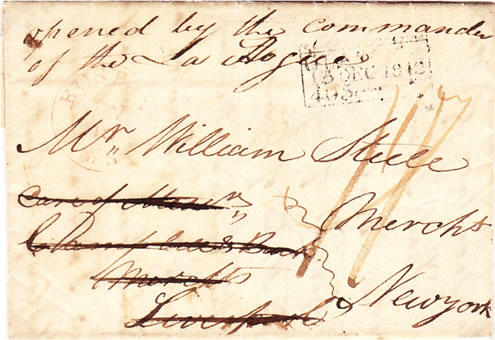 opened by the commander
of the La Hogue
13 DEC 1812
405
Mr. William Steele
Care of Messrs
Merchts
Liverpool
Mercht
Newyork